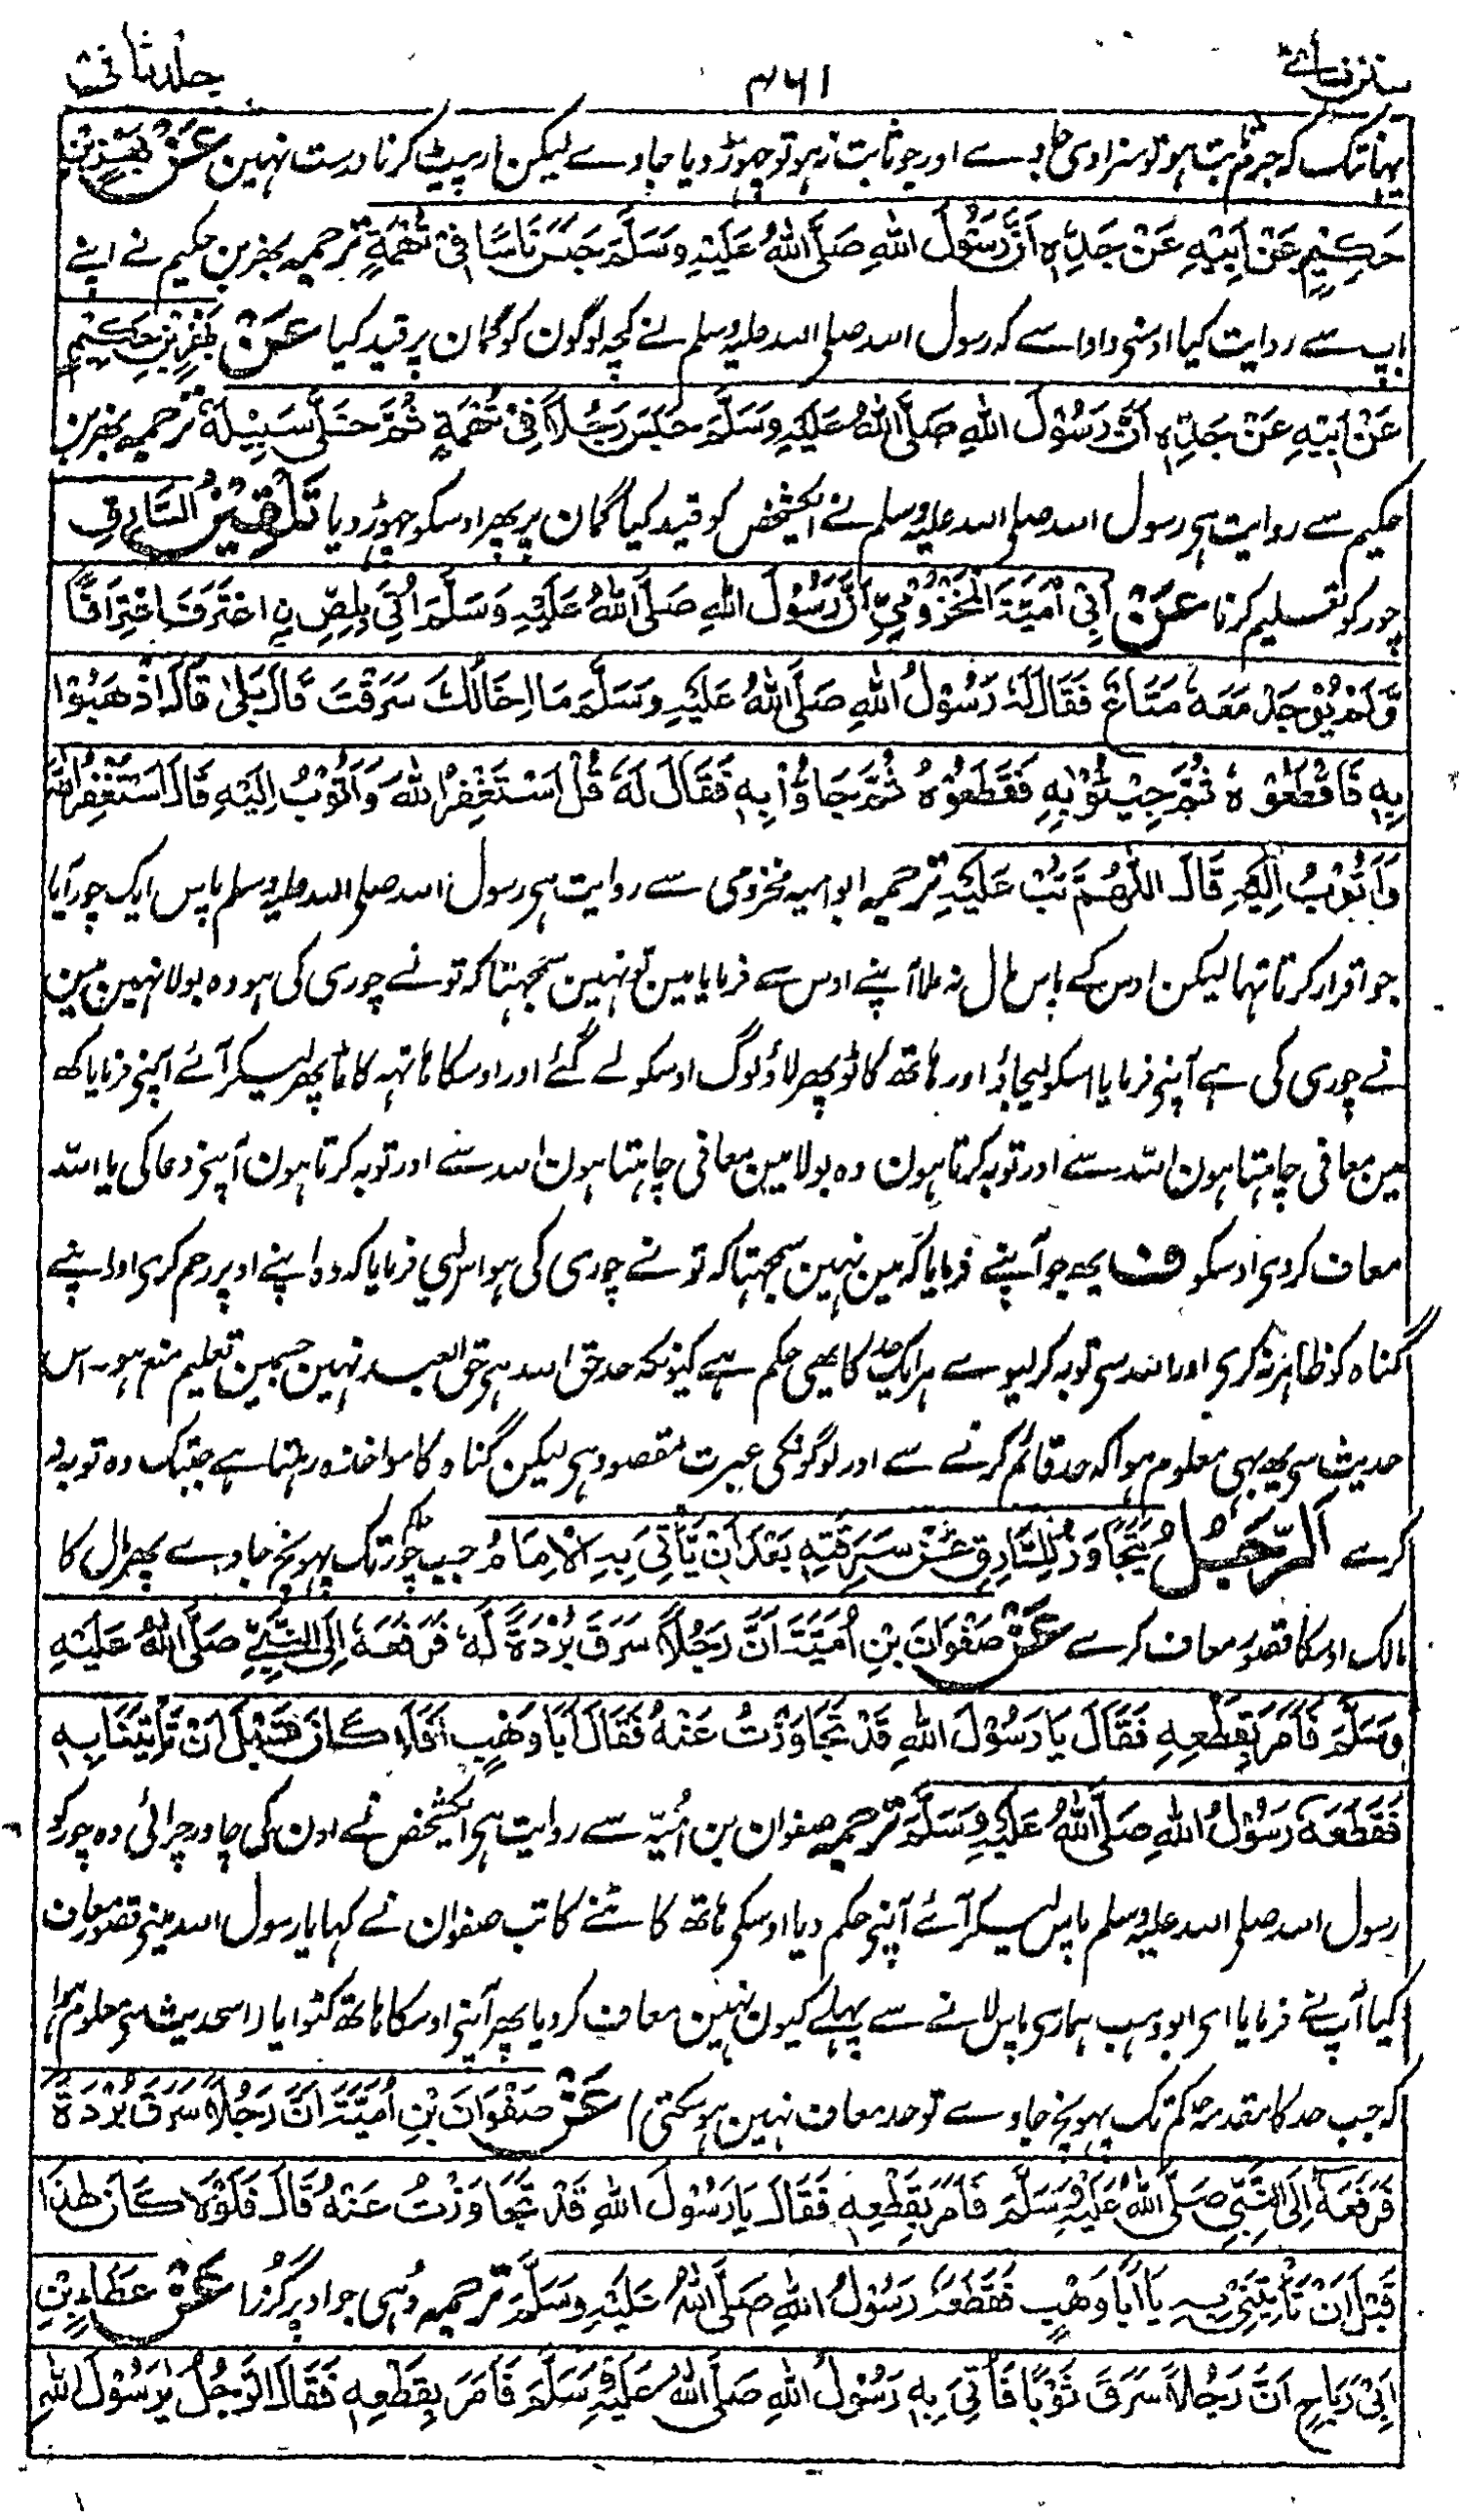 سنن نسائی ۳۶۱ جلد ثانی
یہانتک کہ جرم ثابت ہو تو سزا دی جاوے اور جو ثابت نہ ہو تو چھوڑ دیا جاوے لیکن مار پیٹ کرنا درست نہین عَنْ بَهْزِ بْنِ
حَكِيْمٍ عَنْ اَبِيْهِ عَنْ جَدِّهٖ اَنَّ رَسُوْلَ اللهِ صَلَّى اللهُ عَلَيْهِ وَسَلَّمَ حَبَسَ نَاسًا فِىْ تُهْمَةٍ ترجمہ بہز بن حکیم نے اپنے
باپ سے روایت کیا اوسنی دادا سے کہ رسول اللہ صلی اللہ علیہ وسلم نے کچہ لوگون کو گمان پر قید کیا عَنْ بَهْزِ بْنِ حَكِيْمٍ
عَنْ اَبِيْهِ عَنْ جَدِّهٖ اَنَّ رَسُوْلَ اللهِ صَلَّى اللهُ عَلَيْهِ وَسَلَّمَ حَبَسَ رَجُلًا فِىْ تُهْمَةٍ ثُمَّ خَلّٰى سَبِيْلَهٗ ترجمہ بہز بن
حکیم سے روایت ہی رسول اللہ صلی اللہ علیہ وسلم نے ایکشخص کو قید کیا گمان پر پھر اوسکو چہوڑ دیا تَلْقِيْنُ السَّارِقِ
چور کو تعلیم کرنا عَنْ اَبِىْ اُمَيَّةَ الْمَخْزُوْمِىِّ اَنَّ رَسُوْلَ اللهِ صَلَّى اللهُ عَلَيْهِ وَسَلَّمَ اُتِىَ بِلِصٍّ نِ اعْتَرَفَ اعْتِرَافًا
وَّلَمْ يُوْجَدْ مَعَهٗ مَتَاعٌ فَقَالَ لَهٗ رَسُوْلُ اللهِ صَلَّى اللهُ عَلَيْهِ وَسَلَّمَ مَا اِخَالُكَ سَرَقْتَ قَالَ بَلٰى قَالَ اذْهَبُوْا
بِهٖ فَاقْطَعُوْهُ ثُمَّ جِيْئُوْا بِهٖ فَقَطَعُوْهُ ثُمَّ جَاؤُا بِهٖ فَقَالَ لَهٗ قُلْ اَسْتَغْفِرُ اللهَ وَاَتُوْبُ اِلَيْهِ قَالَ اَسْتَغْفِرُ اللهَ
وَاَتُوْبُ اِلَيْهِ قَالَ اللّٰهُمَّ تُبْ عَلَيْهِ ترجمہ ابو امیہ مخزومی سے روایت ہی رسول اللہ صلی اللہ علیہ وسلم پاس ایک چور آیا
جو اقرار کرتا تہا لیکن اوس کے پاس مال نہ ملا آپنے اوس سے فرمایا مین تو نہین سمجہتا کہ تو نے چوری کی ہو وہ بولا نہین مین
نے چوری کی ہے آپنی فرمایا اسکو لیجاؤ اور ہاتھ کاٹو پھر لاؤ لوگ اوسکو لے گئے اور اوسکا ہاتہہ کاٹا پھر لیکر آئے آپنی فرمایا کہہ
مین معافی چاہتا ہون اللہ سے اور توبہ کرتا ہون وہ بولا مین معافی چاہتا ہون اللہ سے اور توبہ کرتا ہون آپنے دعا کی یا اللہ
معاف کردی اوسکو ف یہ جو آپنے فرمایا کہ مین نہین سمجہتا کہ تو نے چوری کی ہو اسلیے فرمایا کہ وہ اپنے اوپر رحم کری اور اپنے
گناہ کو ظاہر نہ کری اور اللہ سی توبہ کر لیوے ہر ایک حد کا یہی حکم ہے کیونکہ حد حق اللہ ہی حق العبد نہین جسمین تعلیم منع ہو۔ اس
حدیث سی یہ بہی معلوم ہوا کہ حد قائم کرنے سے اور لوگونکی عبرت مقصود ہی لیکن گناہ کا مواخذہ رہتا ہے جبتک وہ توبہ نہ
کرے اَلرَّجُلُ يَتَجَاوَزُ لِلسَّارِقِ عَنْ سَرِقَتِهٖ بَعْدَ اَنْ يَّأْتِىَ بِهِ الْاِمَامَ جب چور حاکم تک پہونچ جاوے پھر مال کا
مالک اوسکا قصور معاف کرے عَنْ صَفْوَانَ بْنِ اُمَيَّةَ اَنَّ رَجُلًا سَرَقَ بُرْدَةً لَهٗ فَرَفَعَهٗ اِلَى النَّبِىِّ صَلَّى اللهُ عَلَيْهِ
وَسَلَّمَ فَاَمَرَ بِقَطْعِهٖ فَقَالَ يَا رَسُوْلَ اللهِ قَدْ تَجَاوَزْتُ عَنْهُ فَقَالَ اَبَا وَهْبٍ اَفَلَا كَانَ قَبْلَ اَنْ تَأْتِيَنَا بِهٖ
فَقَطَعَهٗ رَسُوْلُ اللهِ صَلَّى اللهُ عَلَيْهِ وَسَلَّمَ ترجمہ صفوان بن امیّہ سے روایت ہی ایکشخص نے اون کی چادر چرائی وہ چور کو
رسول اللہ صلی اللہ علیہ وسلم پاس لیکر آئے آپنی حکم دیا اوسکی ہاتھ کاٹنے کا تب صفوان نے کہا یا رسول اللہ مینی قصور معاف
کیا آپنے فرمایا ای ابو وہب ہماری پاس لانے سے پہلے کیون نہین معاف کر دیا پھر آپنی اوسکا ہاتھ کٹوایا (اس حدیث سی معلوم ہوا
کہ جب حد کا مقدمہ حاکم تک پہونچ جاوے تو حد معاف نہین ہو سکتی) عَنْ صَفْوَانَ بْنِ اُمَيَّةَ اَنَّ رَجُلًا سَرَقَ بُرْدَةً
فَرَفَعَهٗ اِلَى النَّبِىِّ صَلَّى اللهُ عَلَيْهِ وَسَلَّمَ فَاَمَرَ بِقَطْعِهٖ فَقَالَ يَا رَسُوْلَ اللهِ قَدْ تَجَاوَزْتُ عَنْهُ قَالَ فَلَوْلَا كَانَ هٰذَا
قَبْلَ اَنْ تَأْتِيَنِىْ بِهٖ يَا اَبَا وَهْبٍ فَقَطَعَهٗ رَسُوْلُ اللهِ صَلَّى اللهُ عَلَيْهِ وَسَلَّمَ ترجمہ وُہی جو اوپر گزرا عَنْ عَطَاءِ بْنِ
اَبِىْ رَبَاحٍ اَنَّ رَجُلًا سَرَقَ ثَوْبًا فَاُتِىَ بِهٖ رَسُوْلُ اللهِ صَلَّى اللهُ عَلَيْهِ وَسَلَّمَ فَاَمَرَ بِقَطْعِهٖ فَقَالَ الرَّجُلُ يَا رَسُوْلَ اللهِ